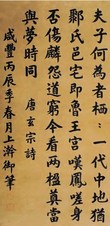 夫子何為者栖々一代中地猶
鄹氏邑宅即魯王宮嘆鳳嗟身
否傷麟怨道窮今看兩楹奠當
與夢時同 唐玄宗詩
咸豐丙辰季春月上澣御筆